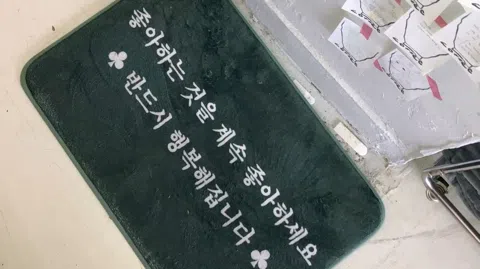 좋아하는 것을 계속 좋아하세요
♣ 반드시 행복해집니다 ♣